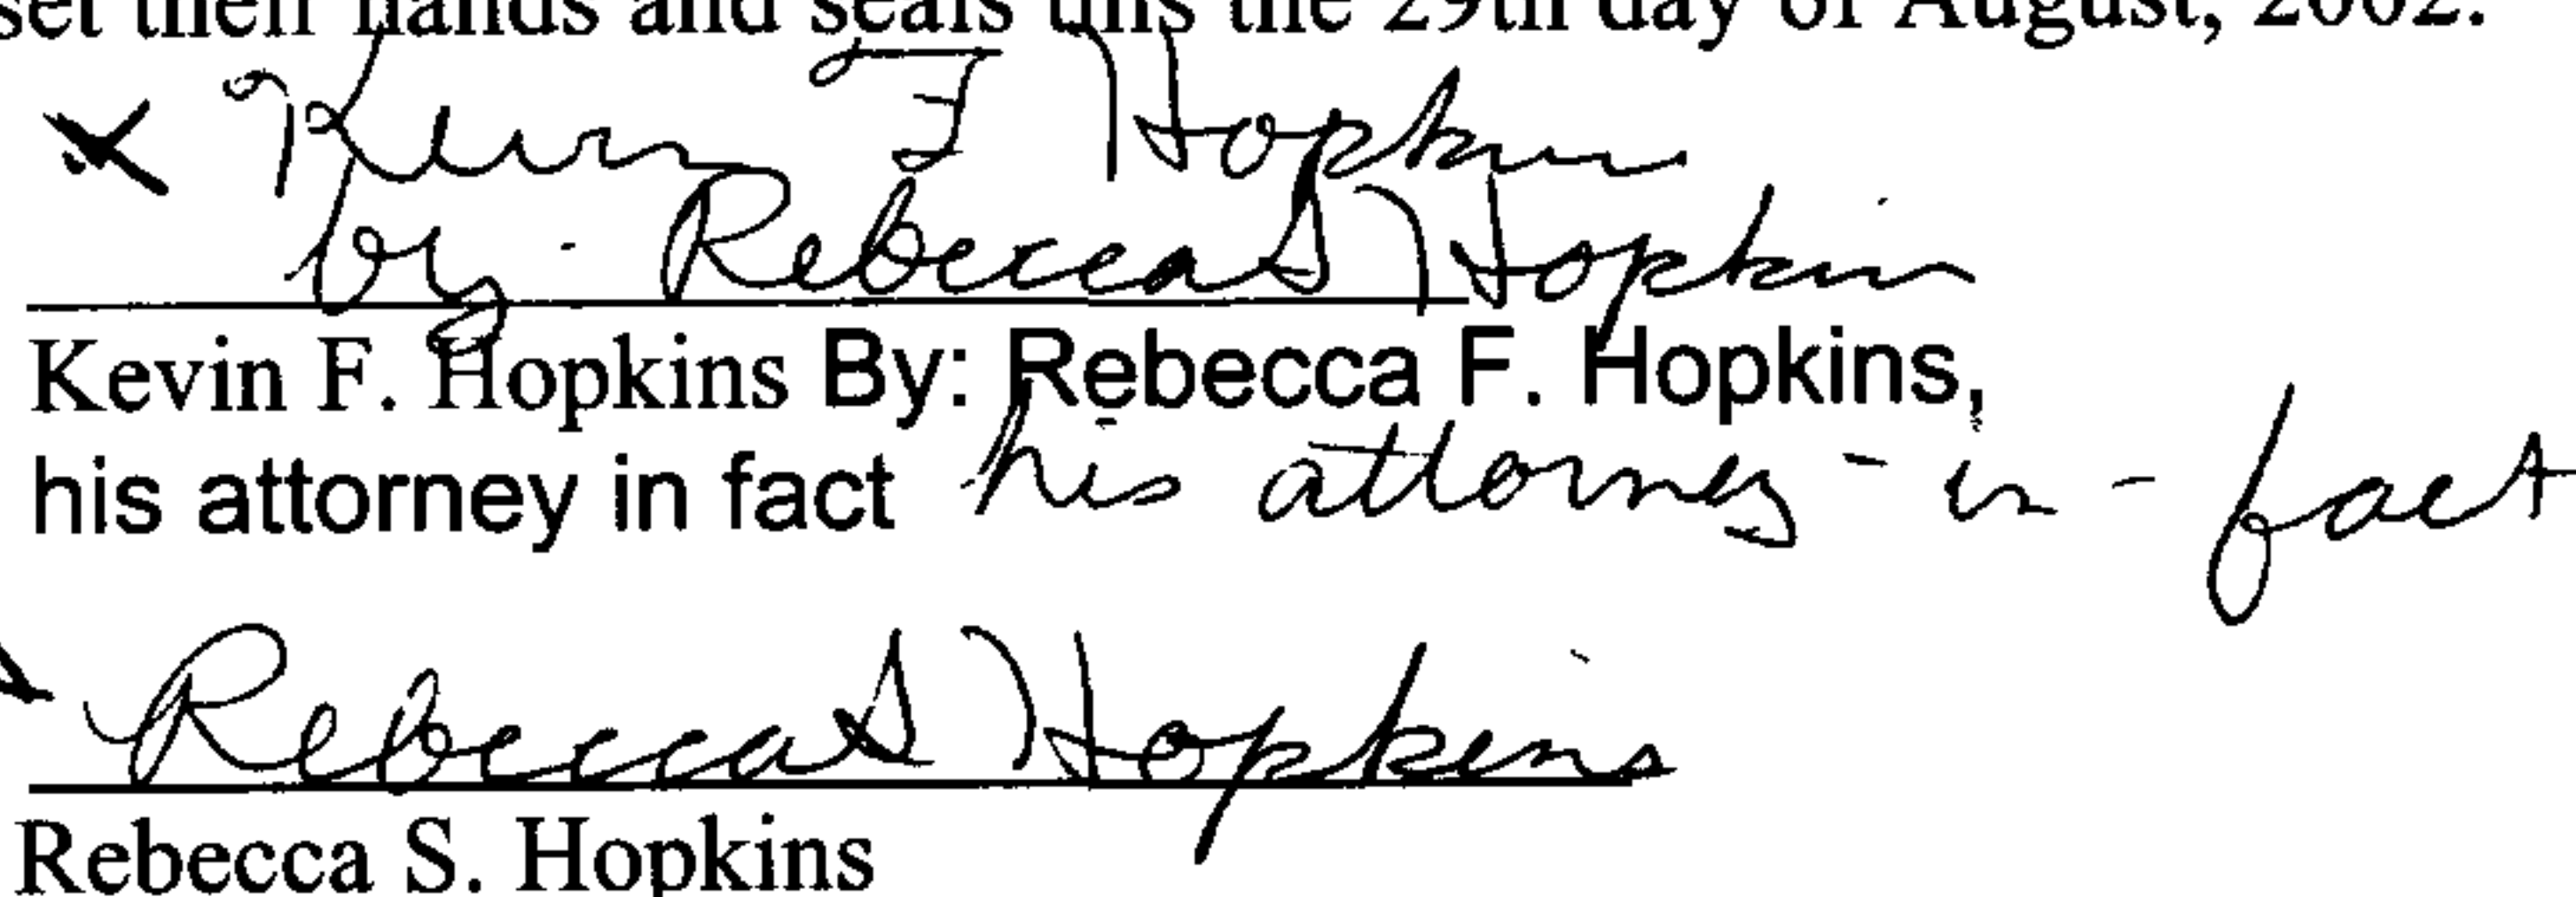 set their hands and seals this the 29th day of August, 2002.
x Kevin F Hopkins
by Rebecca S Hopkins
Kevin F. Hopkins By: Rebecca F. Hopkins,
his attorney in fact his attorney-in-fact
Rebecca S Hopkins
Rebecca S. Hopkins